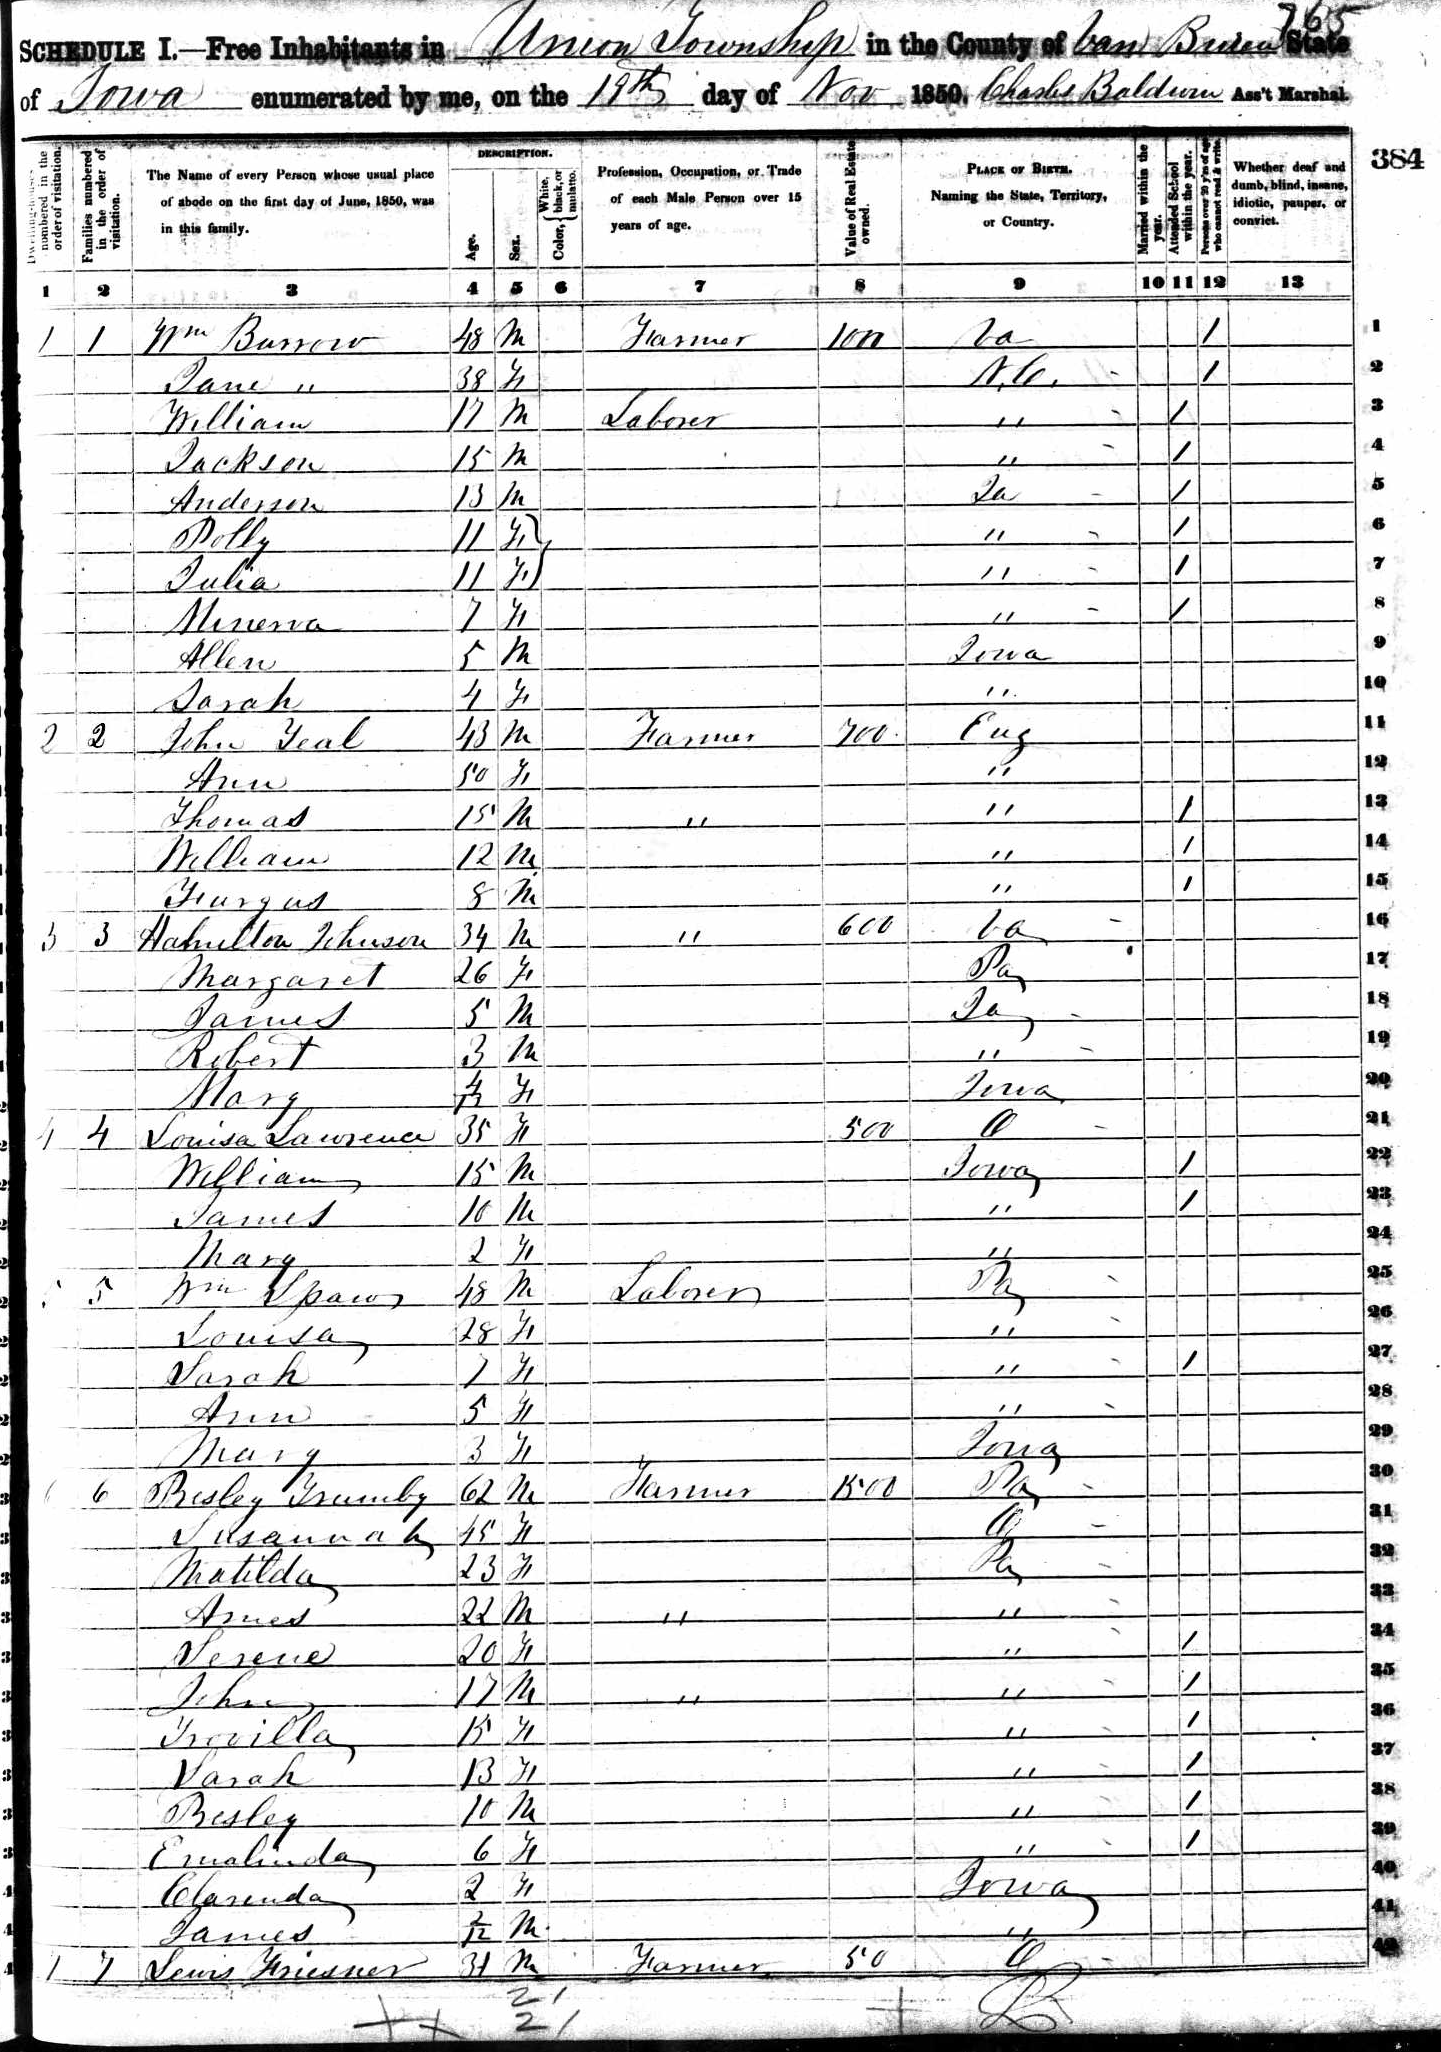 765
SCHEDULE I.—Free Inhabitants in Union Township in the County of Van Buren State
of Iowa enumerated by me, on the 19th day of Nov 1850. Charles Baldwin Ass't Marshal.
384
Dwelling-houses numbered in the order of visitation.
Families numbered in the order of visitation.
The Name of every Person whose usual place of abode on the first day of June, 1850, was in this family.
DESCRIPTION.
Age.
Sex.
Color, { White, black, or mulatto.
Profession, Occupation, or Trade of each Male Person over 15 years of age.
Value of Real Estate owned.
PLACE OF BIRTH. Naming the State, Territory, or Country.
Married within the year.
Attended School within the year.
Persons over 20 y'rs of age who cannot read & write.
Whether deaf and dumb, blind, insane, idiotic, pauper, or convict.
1 2 3 4 5 6 7 8 9 10 11 12 13
1 1 Wm Burrow 48 M Farmer 100 Va 1 1
Jane " 38 F N.C. - 1 2
William 17 M Laborer " - 1 3
Jackson 15 M " - 1 4
Anderson 13 M Ia - 1 5
Polly 11 F } " - 1 6
Julia 11 F } " - 1 7
Minerva 7 F " - 1 8
Allen 5 M Iowa 9
Sarah 4 F " 10
2 2 John Teal 43 M Farmer 700 Eng 11
Ann 50 F " 12
Thomas 15 M " " 1 13
William 12 M " 1 14
Furgus 8 M " 1 15
3 3 Hamilton Johnson 34 M " 600 Va - 16
Margaret 26 F Pa 17
James 5 M Ia - 18
Robert 3 M " - 19
Mary 4/12 F Iowa 20
4 4 Louisa Lawrence 35 F 500 O - 21
William 15 M Iowa 1 22
James 10 M " 1 23
Mary 2 F " 24
5 5 Wm Spaw 48 M Laborer Pa - 25
Louisa 28 F " - 26
Sarah 7 F " - 1 27
Ann 5 F " - 28
Mary 3 F Iowa 29
6 6 Besley Trumby 62 M Farmer 1500 Pa - 30
Susannah 45 F O - 31
Matilda 23 F Pa - 32
Ames 22 M " " - 33
Serene 20 F " - 1 34
John 17 M " " - 1 35
Trovilla 15 F " - 1 36
Sarah 13 F " - 1 37
Besley 10 M " - 1 38
Emalinda 6 F " - 1 39
Clarenda 2 F Iowa 40
James 2/12 M " 41
7 7 Lewis Friesner 31 M Farmer 50 O - 42
21
21